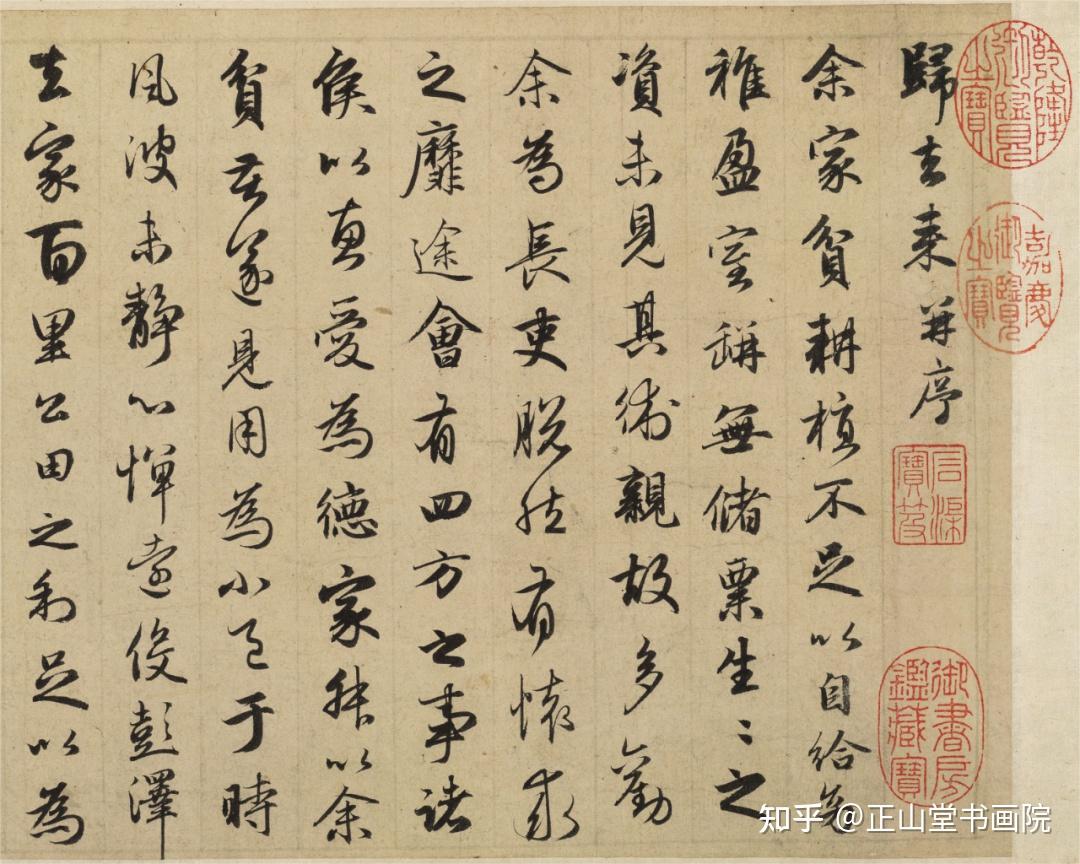 乾隆御覽之寶
嘉慶御覽之寶
歸去來并序
石渠寶笈
御書房鑑藏寶
余家貧耕植不足以自給幼
稚盈室缾無儲粟生〻之
資未見其術親故多勸
余為長吏脫然有懷求
之靡途會有四方之事諸
侯以惠愛為德家叔以余
貧苦遂見用為小邑于時
風波未靜心憚遠役彭澤
去家百里公田之利足以為
知乎 @正山堂书画院